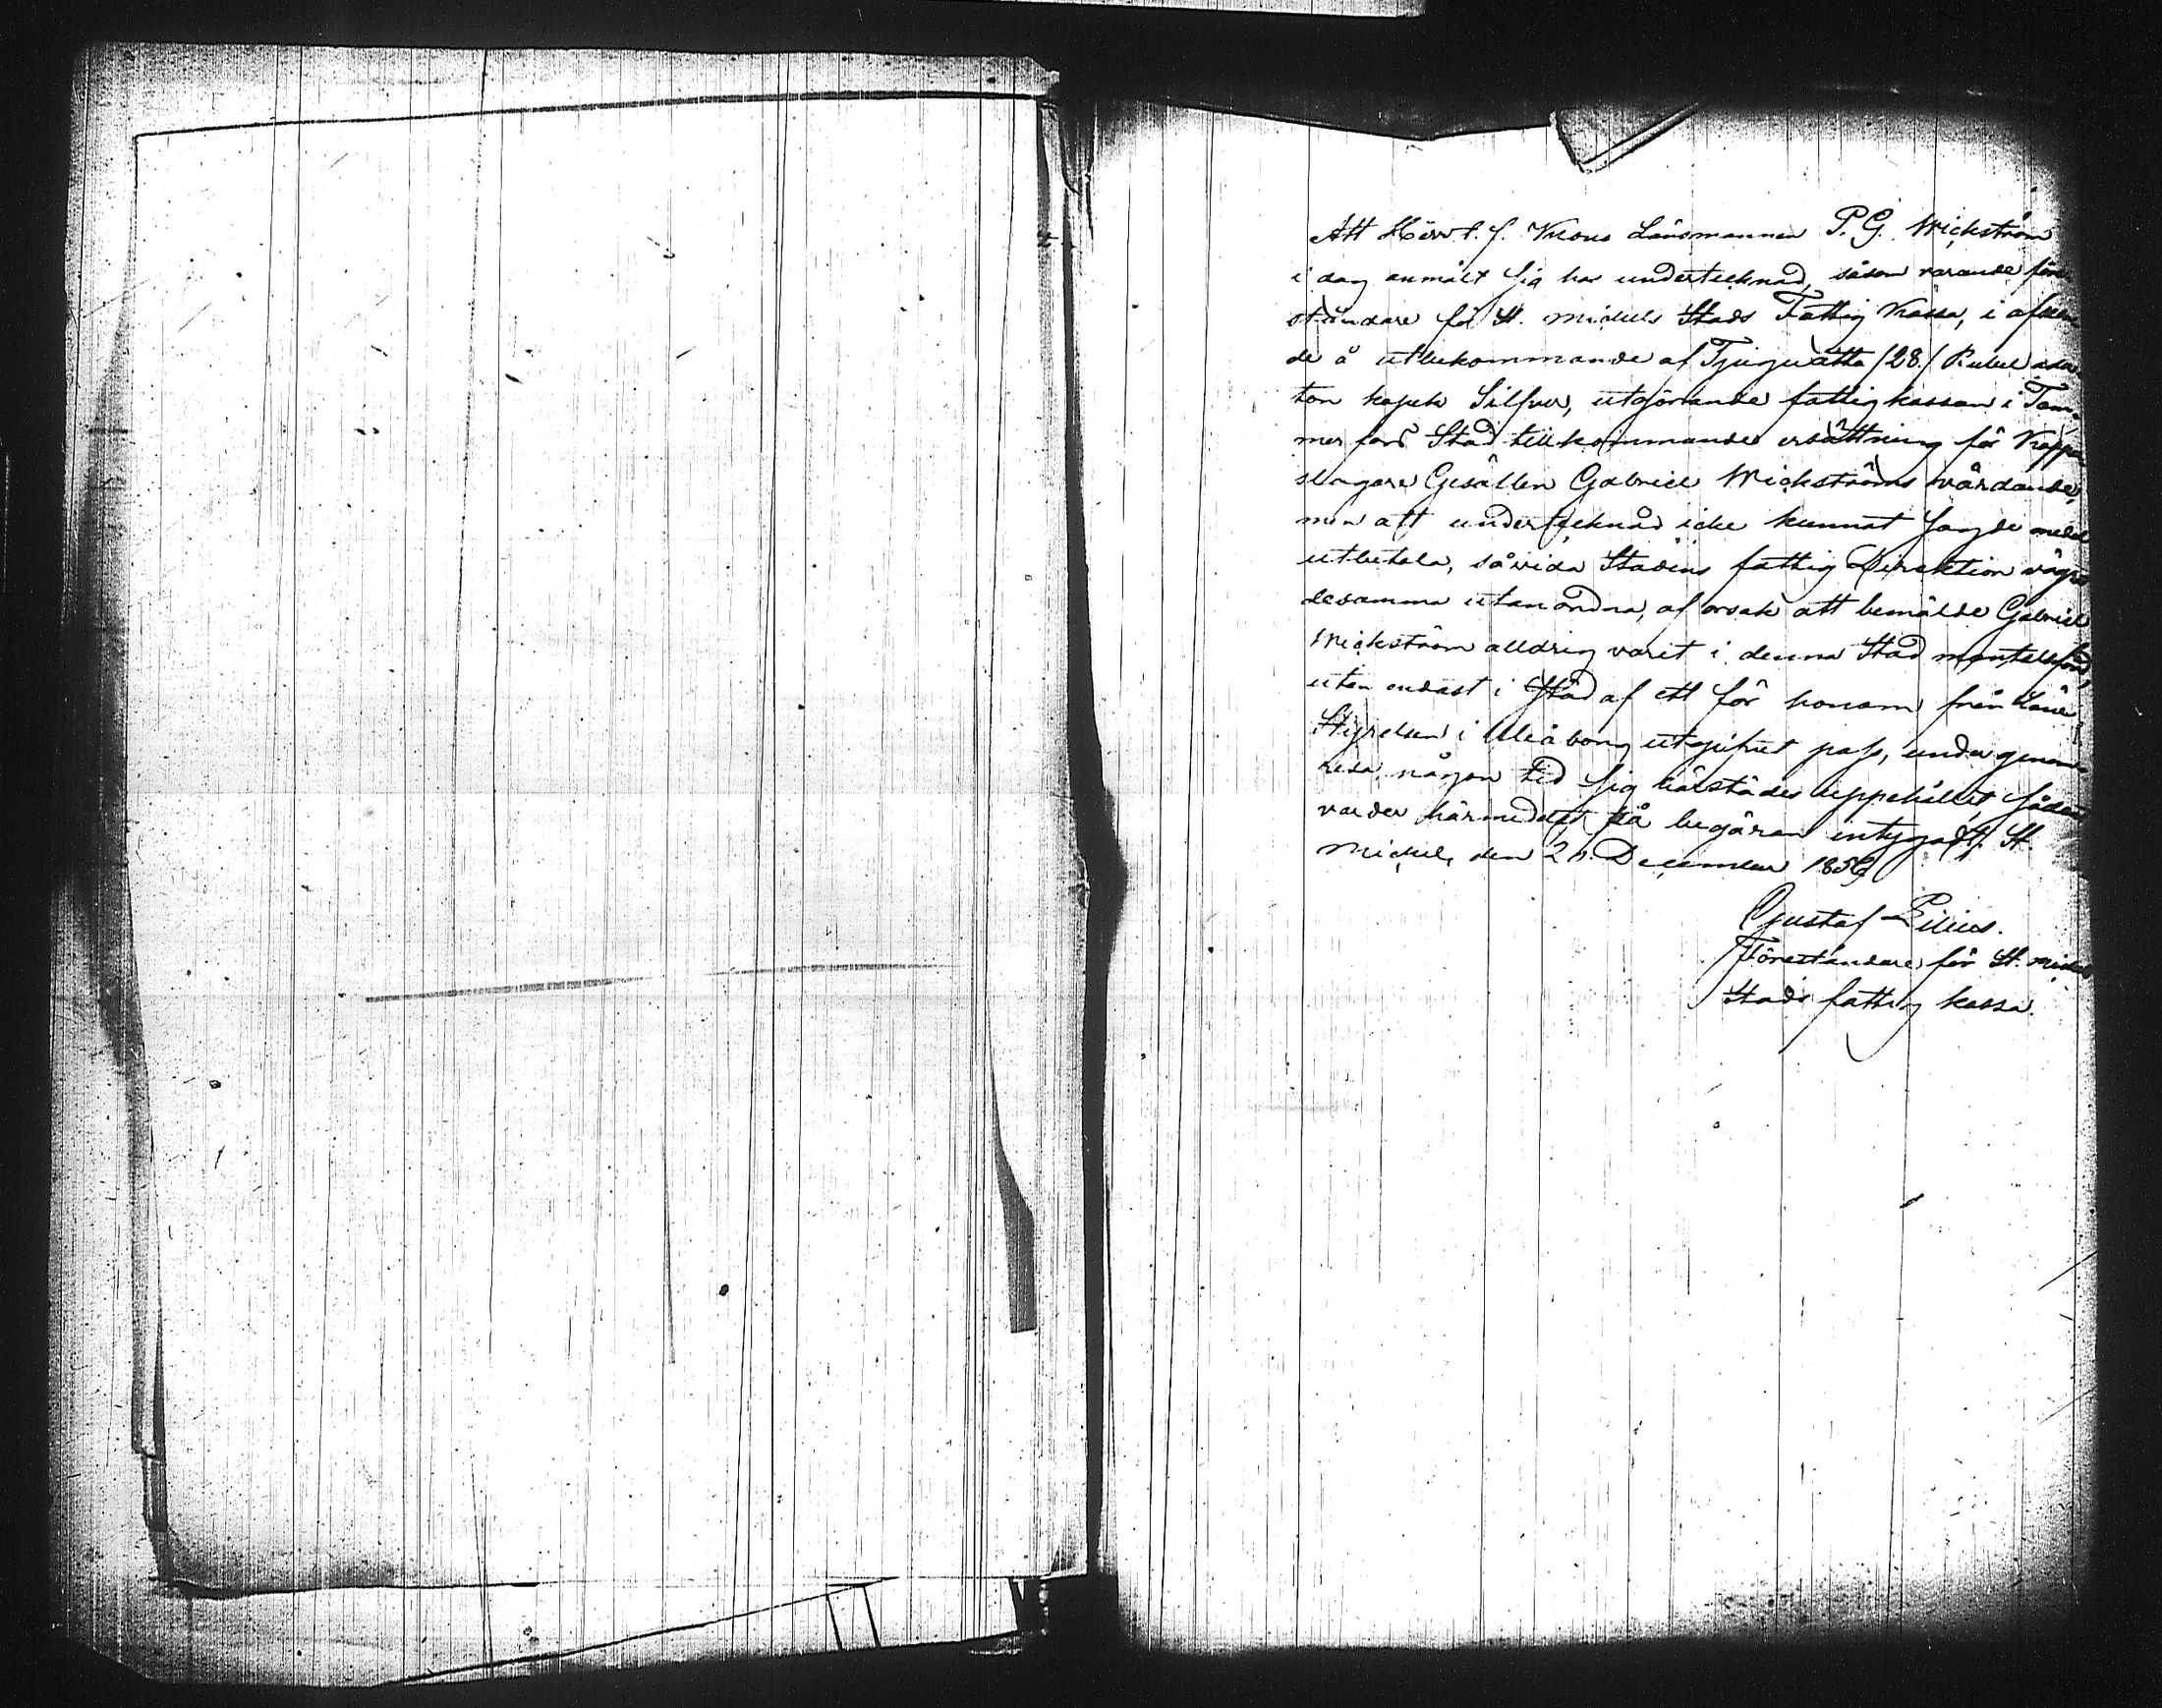 Att Herr t. f. Krono Länsmannen P. G. Wickström
i dag anmält sig hos undertecknad, såsom varande före
ståndare för St. Michels Stads Fattig Kassa, i afseen
de å utbekommande af Tjuguåtta /28./ Rubel
ton kopek Silfver, utgörande fattigkassan i Tam-
merfors Stad tillkommande ersättning för Koppar
slagare Gesällen Gabriel Wickströms vårdande,
men att undertecknad icke kunnat medel
utbetala, såvida Stadens fattig Direktion vägrat
desamma utanordna, af orsak att bemälde Gabriel
Wickström alldrig varit i denna Stad mantalsförd,
utan endast i stöd af ett för honom från Läne
Styrelsen i Uleåborg utgifvet pass, under genom
resa någon tid sig härstädes uppehållit, sådant
varder härmedelst på begäran intygadt. St.
Michel, den 2 December 1856
Gustaf
Föreståndare för St. Michels
Stads fattig kassa.